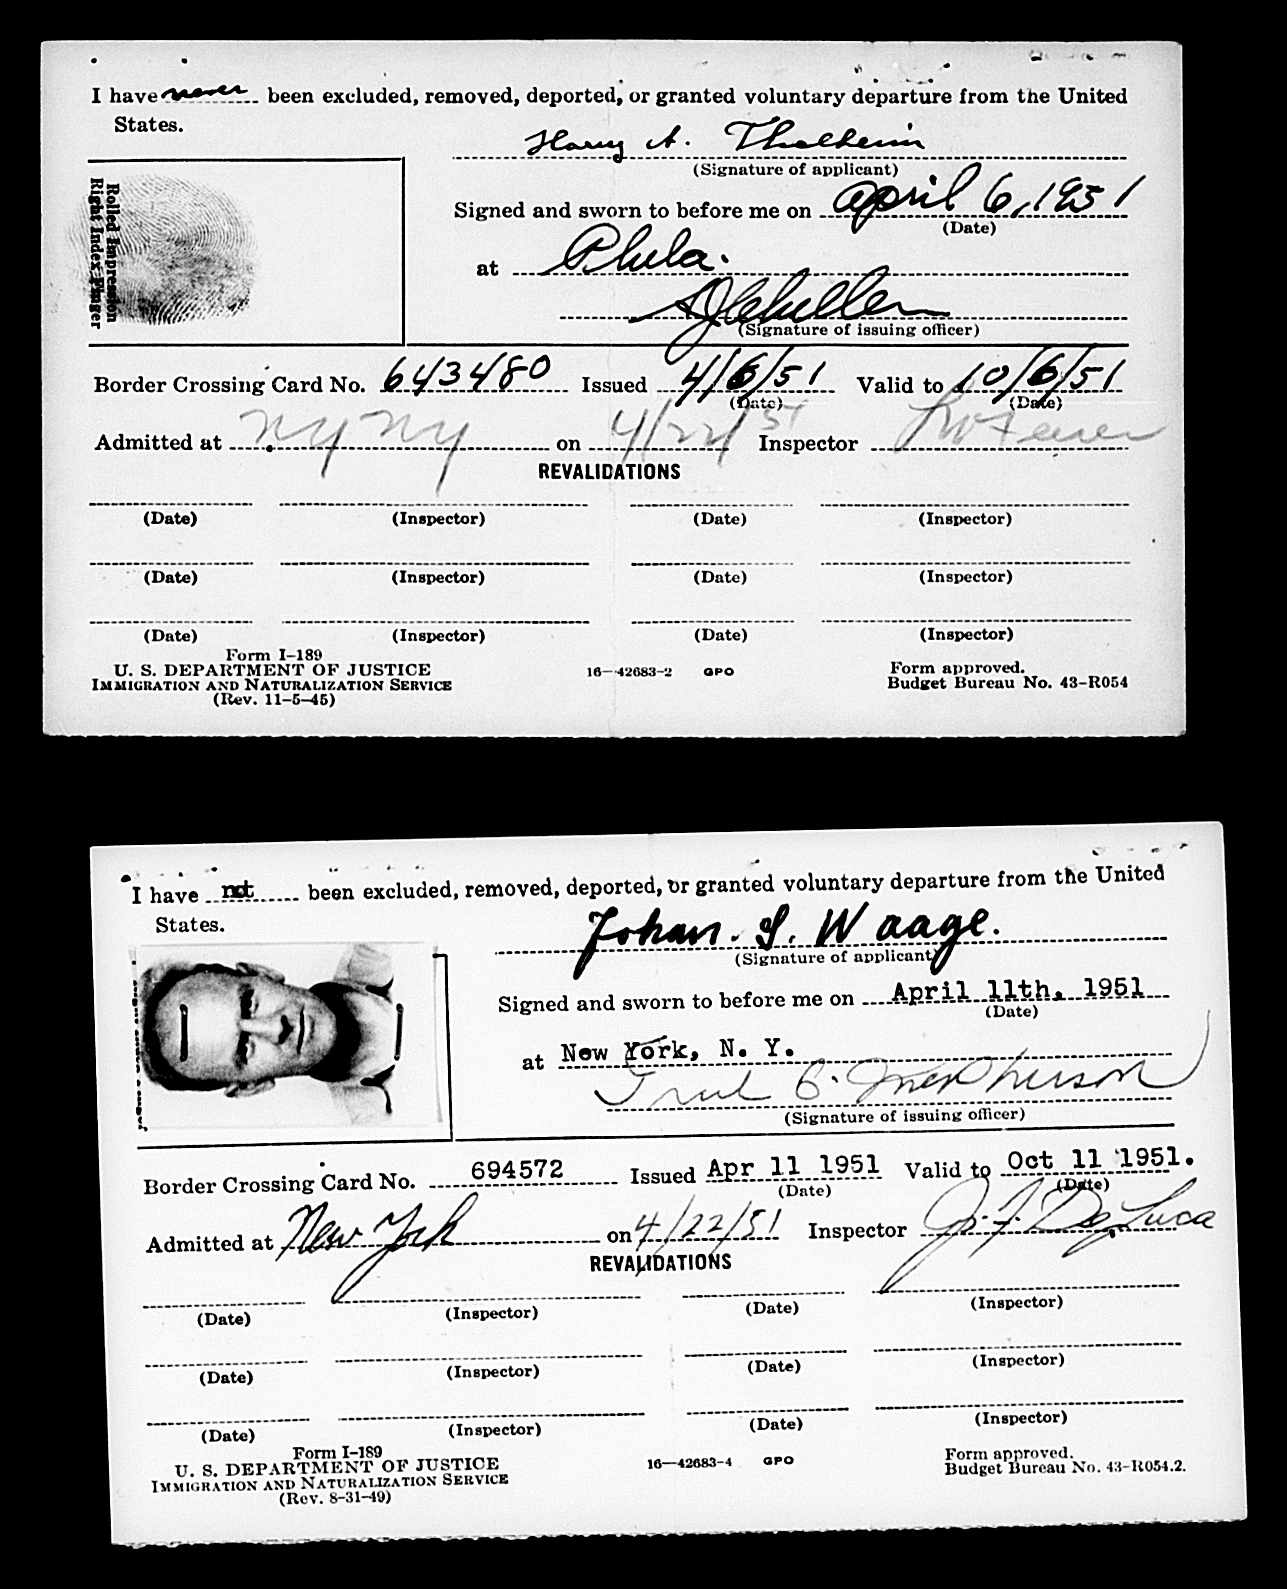 I have never been excluded, removed, deported, or granted voluntary departure from the United
States.
Harry A. Thalheim
(Signature of applicant)
Rolled Impression
Right Index Finger
Signed and sworn to before me on April 6, 1951
(Date)
at Phila.
(Signature of issuing officer)
Border Crossing Card No. 643480 Issued 4/6/51 Valid to 10/6/51
(Date) (Date)
Admitted at NY NY on 4/22/51 Inspector
REVALIDATIONS
(Date) (Inspector) (Date) (Inspector)
(Date) (Inspector) (Date) (Inspector)
(Date) (Inspector) (Date) (Inspector)
Form I-189
U. S. DEPARTMENT OF JUSTICE
IMMIGRATION AND NATURALIZATION SERVICE
(Rev. 11-5-45)
16—42683-2 GPO
Form approved.
Budget Bureau No. 43-R054
I have not been excluded, removed, deported, or granted voluntary departure from the United
States.
Johan. S. Waage.
(Signature of applicant)
Signed and sworn to before me on April 11th, 1951
(Date)
at New York, N. Y.
(Signature of issuing officer)
Border Crossing Card No. 694572 Issued Apr 11 1951 Valid to Oct 11 1951.
(Date) (Date)
Admitted at New York on 4/22/51 Inspector J. F. DeLuca
REVALIDATIONS
(Date) (Inspector) (Date) (Inspector)
(Date) (Inspector) (Date) (Inspector)
(Date) (Inspector) (Date) (Inspector)
Form I-189
U. S. DEPARTMENT OF JUSTICE
IMMIGRATION AND NATURALIZATION SERVICE
(Rev. 8-31-49)
16—42683-4 GPO
Form approved.
Budget Bureau No. 43-R054.2.